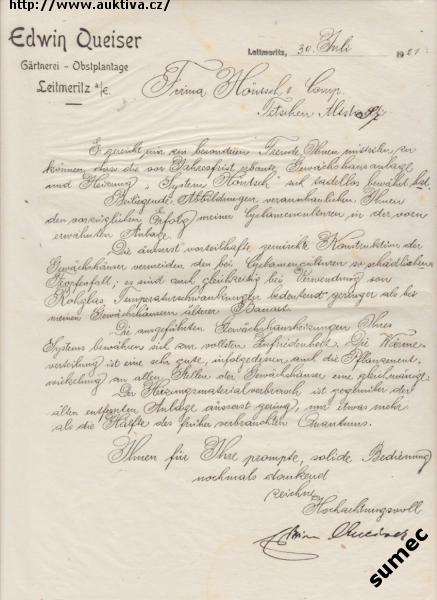 http://www.auktiva.cz/
Edwin Queiser
Gärtnerei - Obstplantage
Leitmeritz a/E.
Leitmeritz, 30. Juli 1921
Firma Höntsch & Comp.
Tetschen Altstadt
Es gereicht mir zur besonderen Freude, Ihnen mitteilen zu
können, dass die vor Jahresfrist erbaute Gewächshausanlage
und Heizung, Systeme Höntsch sich tadellos bewährt hat.
Beiliegende Abbildungen veranschaulichen Ihnen
den vorzüglichen Erfolg meiner Cyclamenculturen in der vorn
erwähnten Anlage.
Die äusserst vorteilhafte gemischte Konstruktion der
Gewächshäuser vermeiden den bei Cyclamenculturen so schädlichen
Tropfenfall; es sind auch gleichzeitig bei Verwendung von
Rohglas Temperaturschwankungen bedeutend geringer als bei
meinen Gewächshäusern älterer Bauart.
Die ausgeführten Gewächshausheizungen Ihres
Systems bewähren sich zur vollsten Zufriedenheit. Die Wärme-
verteilung ist eine sehr gute, infolgedessen auch die Pflanzenent-
wickelung an allen Stellen der Gewächshäuser eine gleichmässige.
Der Heizungsmaterialverbrauch ist gegenüber der
alten entfernten Anlage äusserst gering, nur etwas mehr
als die Hälfte des früher verbrauchten Quantums.
Ihnen für Ihre prompte, solide Bedienung
nochmals dankend
zeichne
Hochachtungsvoll
Edwin Queiser
sumec